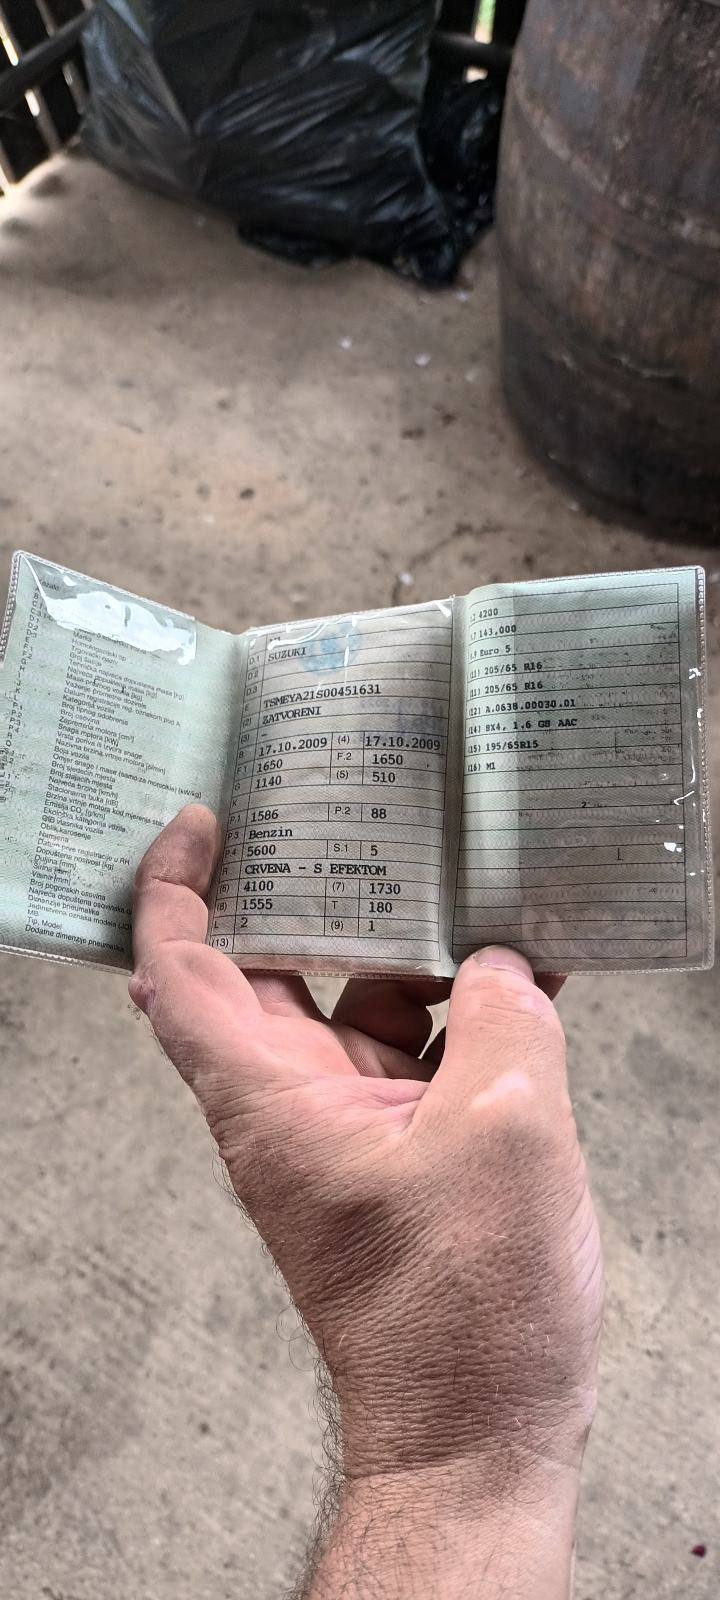 Marka
Homologacijski tip
Trgovački naziv
Broj šasije
Tehnička najveća dopuštena masa [kg]
Najveća dopuštena masa [kg]
Masa praznog vozila [kg]
Važenje prometne dozvole
Datum registracije reg. oznakom pod A
Kategorija vozila
Broj tipnog odobrenja
Broj osovina
Zapremina motora [cm³]
Snaga motora [kW]
Vrsta goriva ili izvora snage
Nazivna brzina vrtnje motora [o/min]
Boja vozila
Omjer snage i mase (samo za motocikle) [kW/kg]
Broj sjedećih mjesta
Broj stajaćih mjesta
Najveća brzina [km/h]
Stacionarna buka [dB]
Brzina vrtnje motora kod mjerenja stac.
Emisija CO₂ [g/km]
Ekološka kategorija vozila
OIB vlasnika vozila
Oblik karoserije
Namjena
Datum prve registracije u RH
Dopuštena nosivost [kg]
Duljina [mm]
Širina [mm]
Visina [mm]
Broj pogonskih osovina
Najveća dopuštena osovinska
Dimenzije pneumatika
Jedinstvena oznaka modela
MB
Tip, Model
Dodatne dimenzije pneumatika
D.1 SUZUKI
D.2
D.3
E TSMEYA21S00451631
(2) ZATVORENI
(3) -
B 17.10.2009 (4) 17.10.2009
F.1 1650 F.2 1650
G 1140 (5) 510
K
P.1 1586 P.2 88
P.3 Benzin
P.4 5600 S.1 5
R CRVENA - S EFEKTOM
(6) 4100 (7) 1730
(8) 1555 T 180
L 2 (9) 1
(13)
4200
143,000
Euro 5
(11) 205/65 R16
(11) 205/65 R16
(12) A.0638.00030.01
(14) SX4, 1.6 GS AAC
(15) 195/65R15
(16) M1